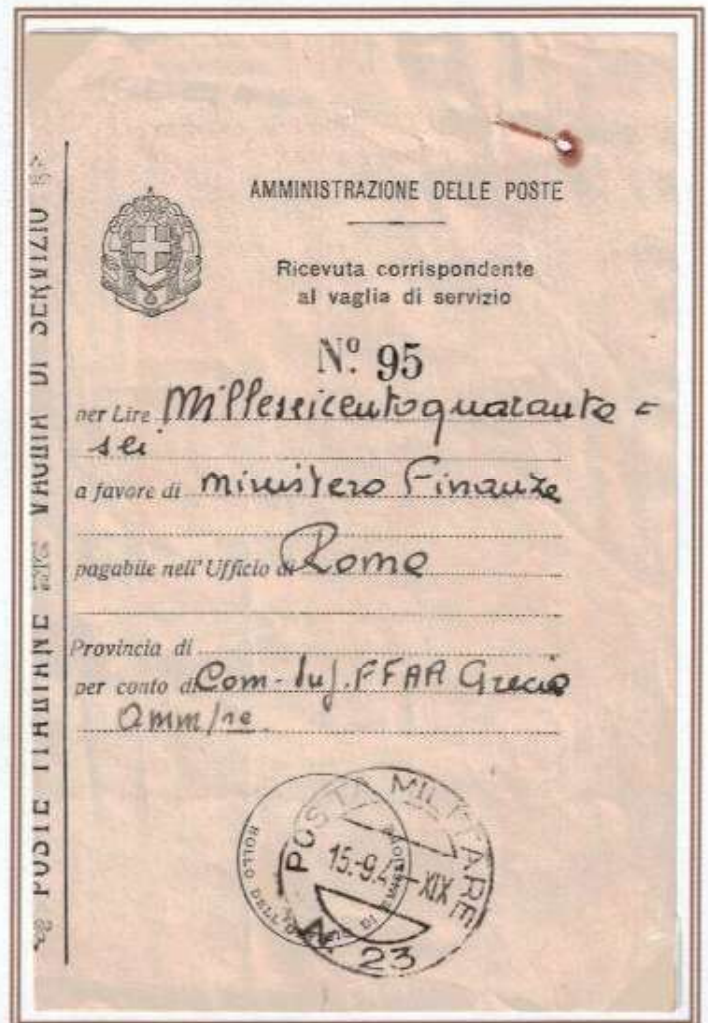 POSTE ITALIANE VAGLIA DI SERVIZIO
AMMINISTRAZIONE DELLE POSTE
Ricevuta corrispondente
al vaglia di servizio
Nº 95
per Lire Milleseicentoquaranta=
sei
a favore di Ministero Finanze
pagabile nell'Ufficio di Roma
Provincia di
per conto di Com. Sup. FFAA Grecia
Amm/ne
POSTA MILITARE
15.-9.4 XIX
N 23
BOLLO DELL' DI EMISSIONE